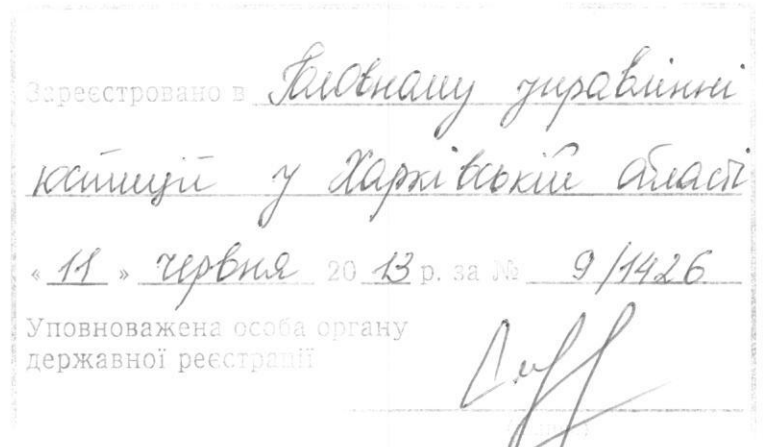 Зареєстровано в Головному управлінні
юстиції у Харківській області
« 11 » червня 20 13 р. за № 9/1426
Уповноважена особа органу
державної реєстрації